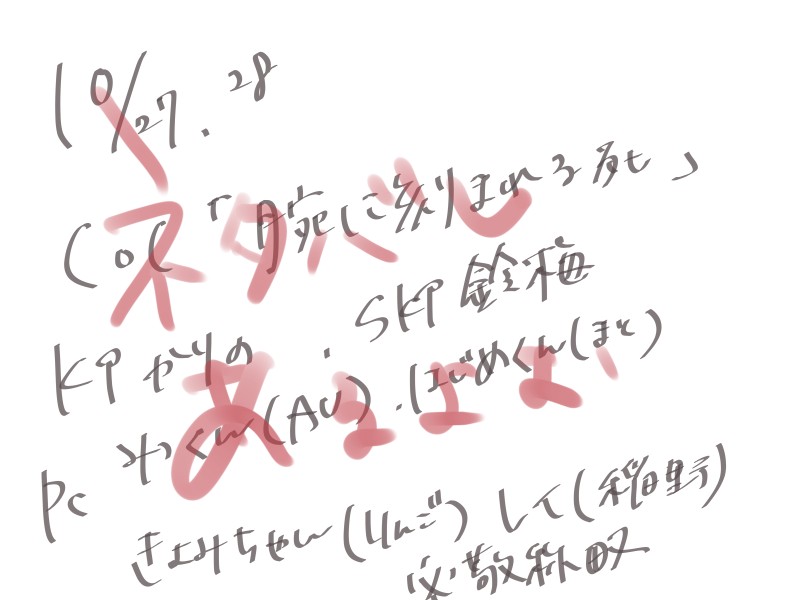 10/27.28
CoC「腕に刻まれる死」
KPかりの . SKP鈴梅
PC わくん(AU).はじめくん(まと)
きよみちゃん(りんご) レイ(稲野)
敬称略
ネタバレ
あるよよ